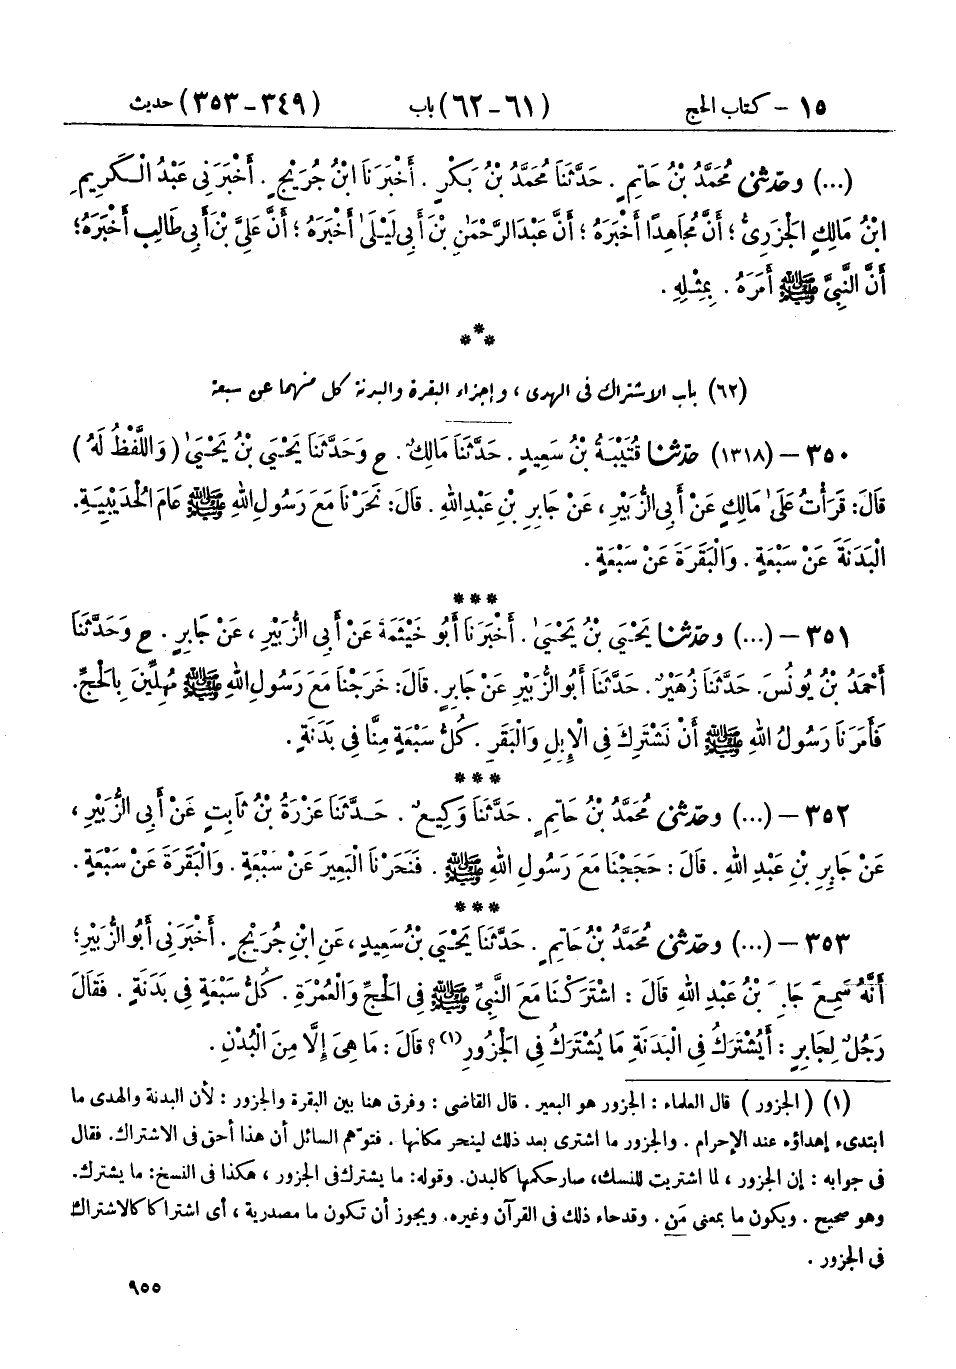 ١٥ – كتاب الحج (٦١ – ٦٢) باب (٣٤٩ – ٣٥٣) حديث
(...) وحدثنى مُحَمَّدُ بْنُ حَاتِمٍ . حَدَّثَنَا مُحَمَّدُ بْنُ بَكْرٍ . أَخْبَرَنَا ابْنُ جُرَيْجٍ . أَخْبَرَنِى عَبْدُ الْكَرِيمِ
ابْنُ مَالِكٍ الْجَزَرِىُّ ؛ أَنَّ مُجَاهِدًا أَخْبَرَهُ ؛ أَنَّ عَبْدَ الرَّحْمَٰنِ بْنَ أَبِى لَيْلَىٰ أَخْبَرَهُ ؛ أَنَّ عَلِىَّ بْنَ أَبِى طَالِبٍ أَخْبَرَهُ ؛
أَنَّ النَّبِىَّ ﷺ أَمَرَهُ . بِمِثْلِهِ .
***
(٦٢) باب الاشتراك فى الهدى ، وإجزاء البقرة والبدنة كل منهما عن سبعة
٣٥٠ – (١٣١٨) حَدَّثَنَا قُتَيْبَةُ بْنُ سَعِيدٍ . حَدَّثَنَا مَالِكٌ . ح وَحَدَّثَنَا يَحْيَىٰ بْنُ يَحْيَىٰ ( وَاللَّفْظُ لَهُ )
قَالَ : قَرَأْتُ عَلَىٰ مَالِكٍ عَنْ أَبِى الزُّبَيْرِ ، عَنْ جَابِرِ بْنِ عَبْدِ اللهِ . قَالَ : نَحَرْنَا مَعَ رَسُولِ اللهِ ﷺ عَامَ الْحُدَيْبِيَةِ .
الْبَدَنَةَ عَنْ سَبْعَةٍ . وَالْبَقَرَةَ عَنْ سَبْعَةٍ .
***
٣٥١ – (...) وَحَدَّثَنَا يَحْيَىٰ بْنُ يَحْيَىٰ . أَخْبَرَنَا أَبُو خَيْثَمَةَ عَنْ أَبِى الزُّبَيْرِ ، عَنْ جَابِرٍ . ح وَحَدَّثَنَا
أَحْمَدُ بْنُ يُونُسَ . حَدَّثَنَا زُهَيْرٌ . حَدَّثَنَا أَبُو الزُّبَيْرِ عَنْ جَابِرٍ . قَالَ : خَرَجْنَا مَعَ رَسُولِ اللهِ ﷺ مُهِلِّينَ بِالْحَجِّ .
فَأَمَرَنَا رَسُولُ اللهِ ﷺ أَنْ نَشْتَرِكَ فِى الْإِبِلِ وَالْبَقَرِ . كُلُّ سَبْعَةٍ مِنَّا فِى بَدَنَةٍ .
***
٣٥٢ – (...) وحدثنى مُحَمَّدُ بْنُ حَاتِمٍ . حَدَّثَنَا وَكِيعٌ . حَدَّثَنَا عَزْرَةُ بْنُ ثَابِتٍ عَنْ أَبِى الزُّبَيْرِ ،
عَنْ جَابِرِ بْنِ عَبْدِ اللهِ . قَالَ : حَجَجْنَا مَعَ رَسُولِ اللهِ ﷺ . فَنَحَرْنَا الْبَعِيرَ عَنْ سَبْعَةٍ . وَالْبَقَرَةَ عَنْ سَبْعَةٍ .
***
٣٥٣ – (...) وحدثنى مُحَمَّدُ بْنُ حَاتِمٍ . حَدَّثَنَا يَحْيَىٰ بْنُ سَعِيدٍ ، عَنِ ابْنِ جُرَيْجٍ . أَخْبَرَنِى أَبُو الزُّبَيْرِ ؛
أَنَّهُ سَمِعَ جَابِرَ بْنَ عَبْدِ اللهِ قَالَ : اشْتَرَكْنَا مَعَ النَّبِىِّ ﷺ فِى الْحَجِّ وَالْعُمْرَةِ . كُلُّ سَبْعَةٍ فِى بَدَنَةٍ . فَقَالَ
رَجُلٌ لِجَابِرٍ : أَيُشْتَرَكُ فِى الْبَدَنَةِ مَا يُشْتَرَكُ فِى الْجَزُورِ (١) ؟ قَالَ : مَا هِىَ إِلَّا مِنَ الْبُدْنِ .
(١) ( الجزور ) قال العلماء : الجزور هو البعير . قال القاضى : وفرق هنا بين البقرة والجزور : لأن البدنة والهدى ما
ابتدىء إهداؤه عند الإحرام . والجزور ما اشترى بعد ذلك لينحر مكانها . فتوهم السائل أن هذا أحق فى الاشتراك . فقال
فى جوابه : إن الجزور ، لما اشتريت للنسك، صار حكمها كالبدن . وقوله : ما يشترك فى الجزور ، هكذا فى النسخ : ما يشترك .
وهو صحيح . ويكون ما بمعنى مَن . وقد جاء ذلك فى القرآن وغيره . ويجوز أن تكون ما مصدرية ، أى اشتراكا كالاشتراك
فى الجزور .
٩٥٥